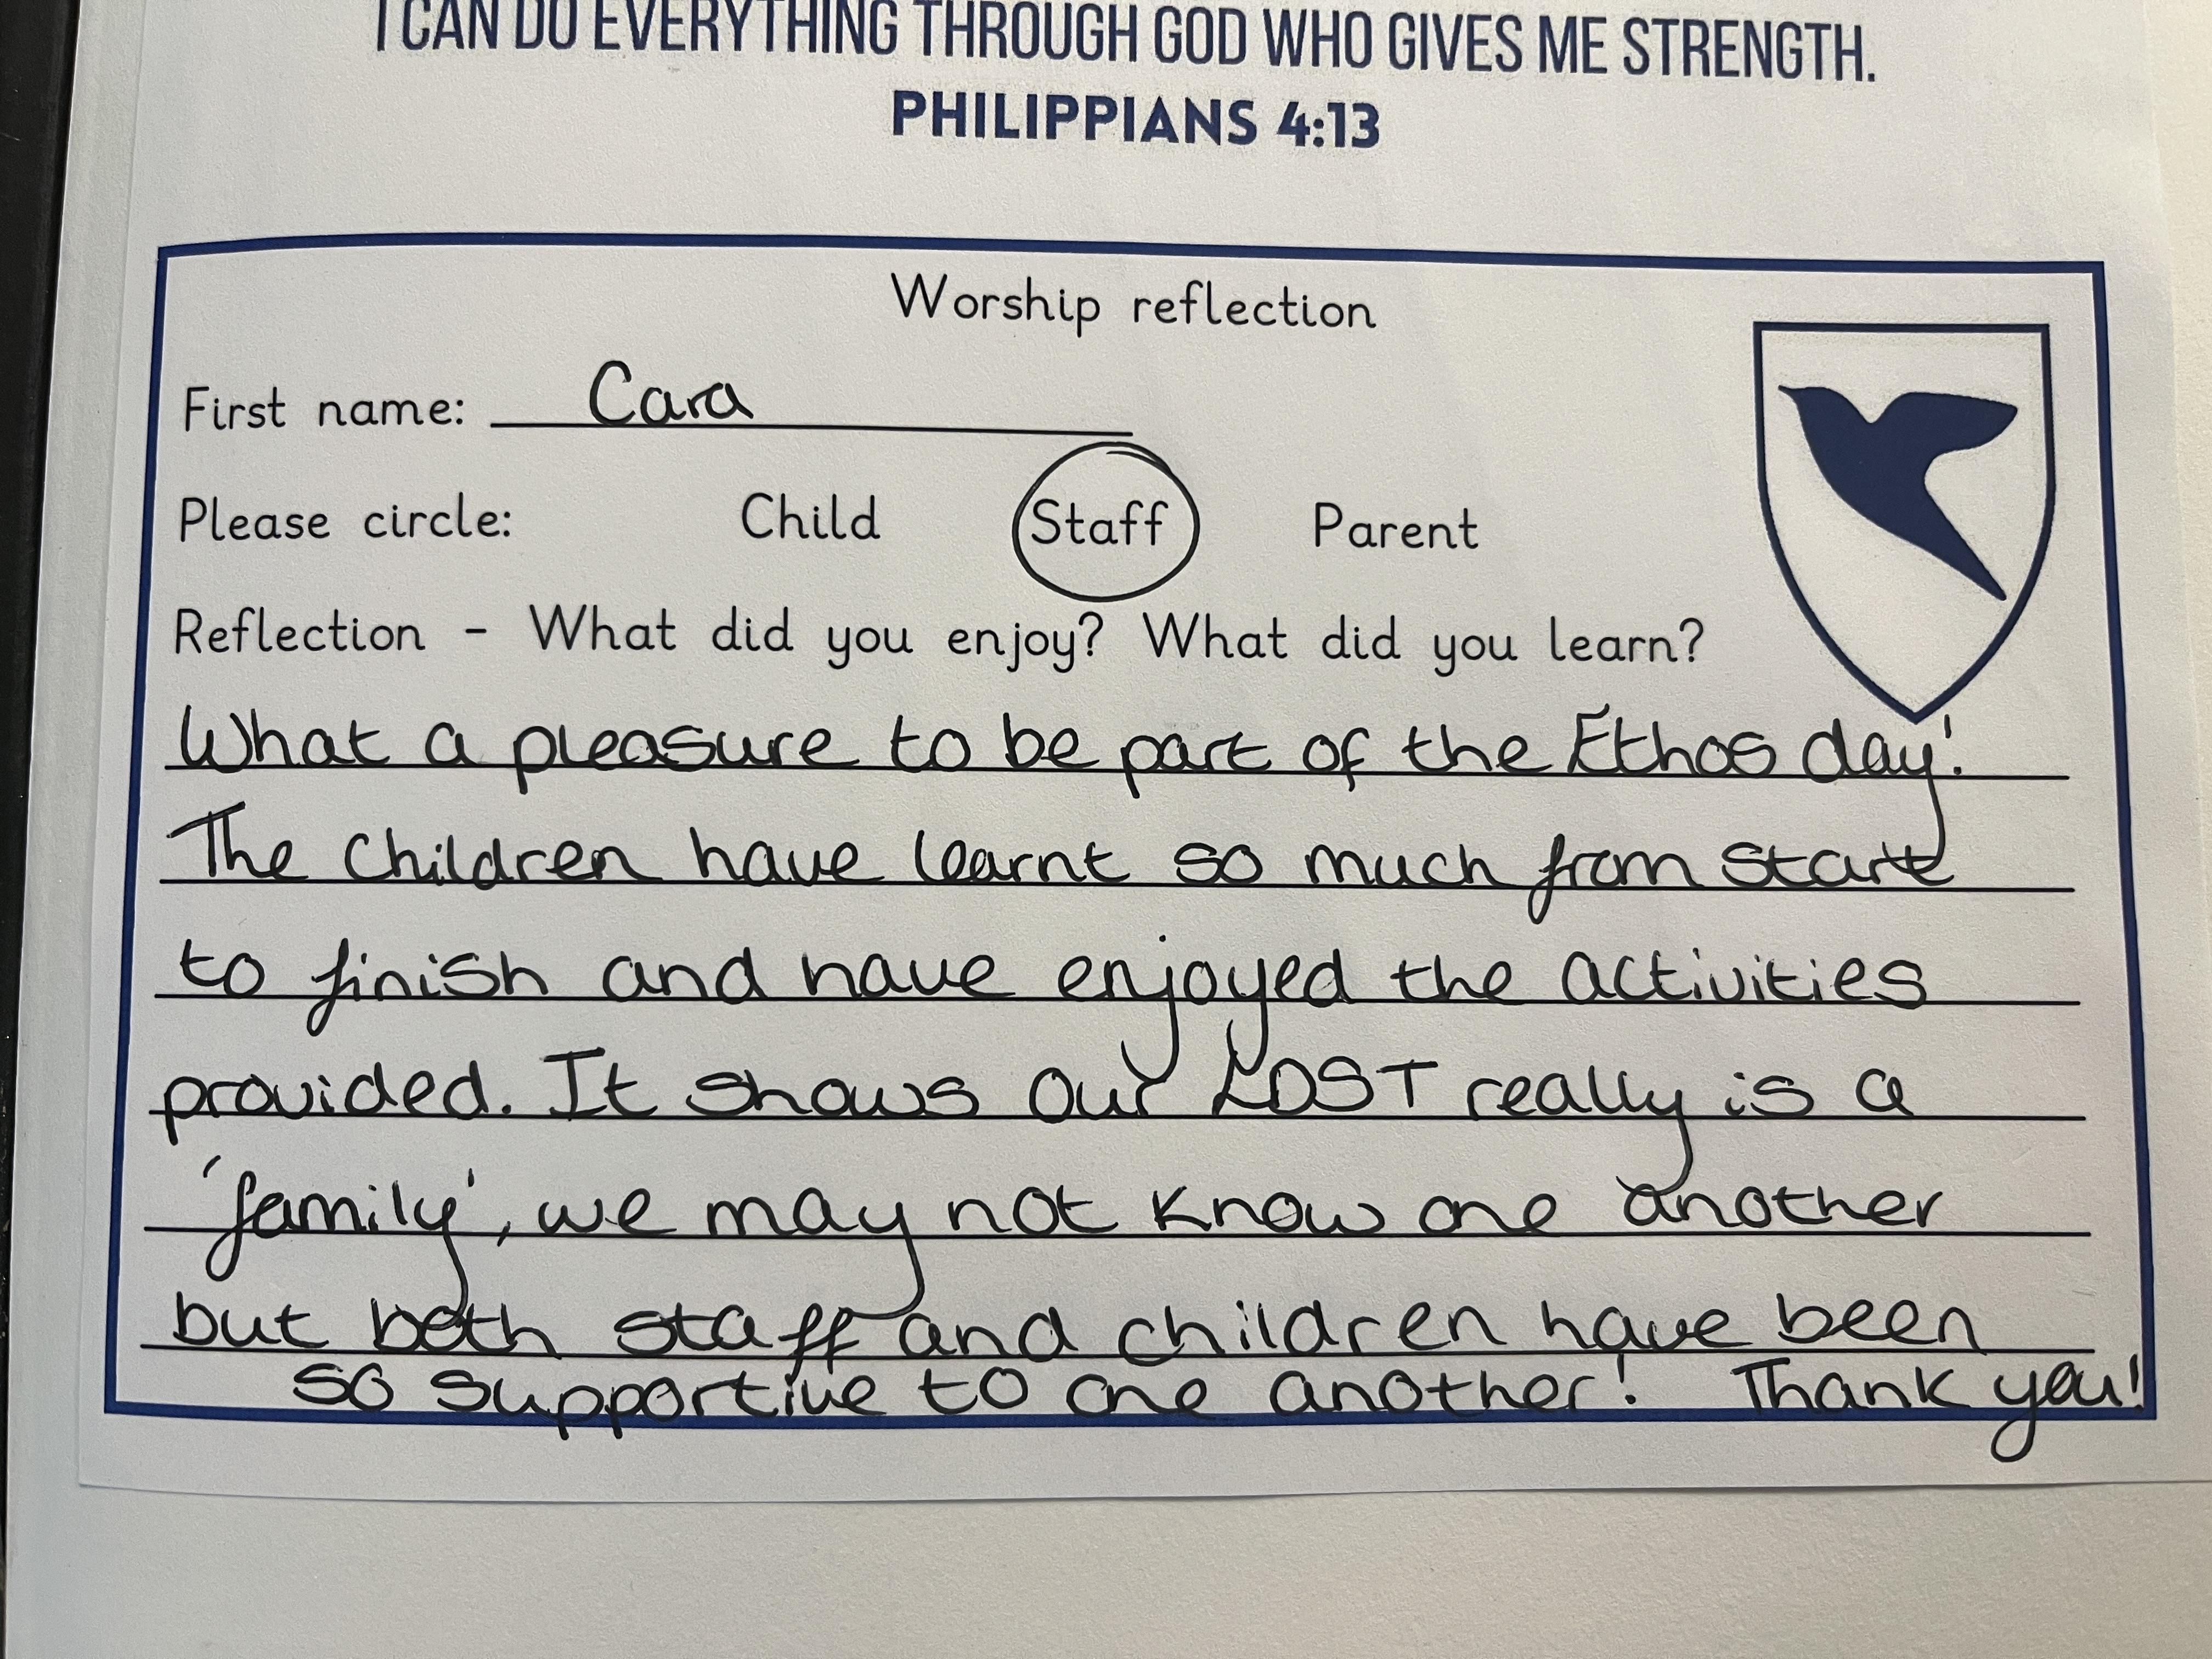 I CAN DO EVERYTHING THROUGH GOD WHO GIVES ME STRENGTH.
PHILIPPIANS 4:13
Worship reflection
First name: Cara
Please circle: Child Staff Parent
Reflection - What did you enjoy? What did you learn?
What a pleasure to be part of the Ethos day!
The children have learnt so much from start
to finish and have enjoyed the activities
provided. It shows our LDST really is a
'family', we may not know one another
but both staff and children have been
so supportive to one another! Thank you!